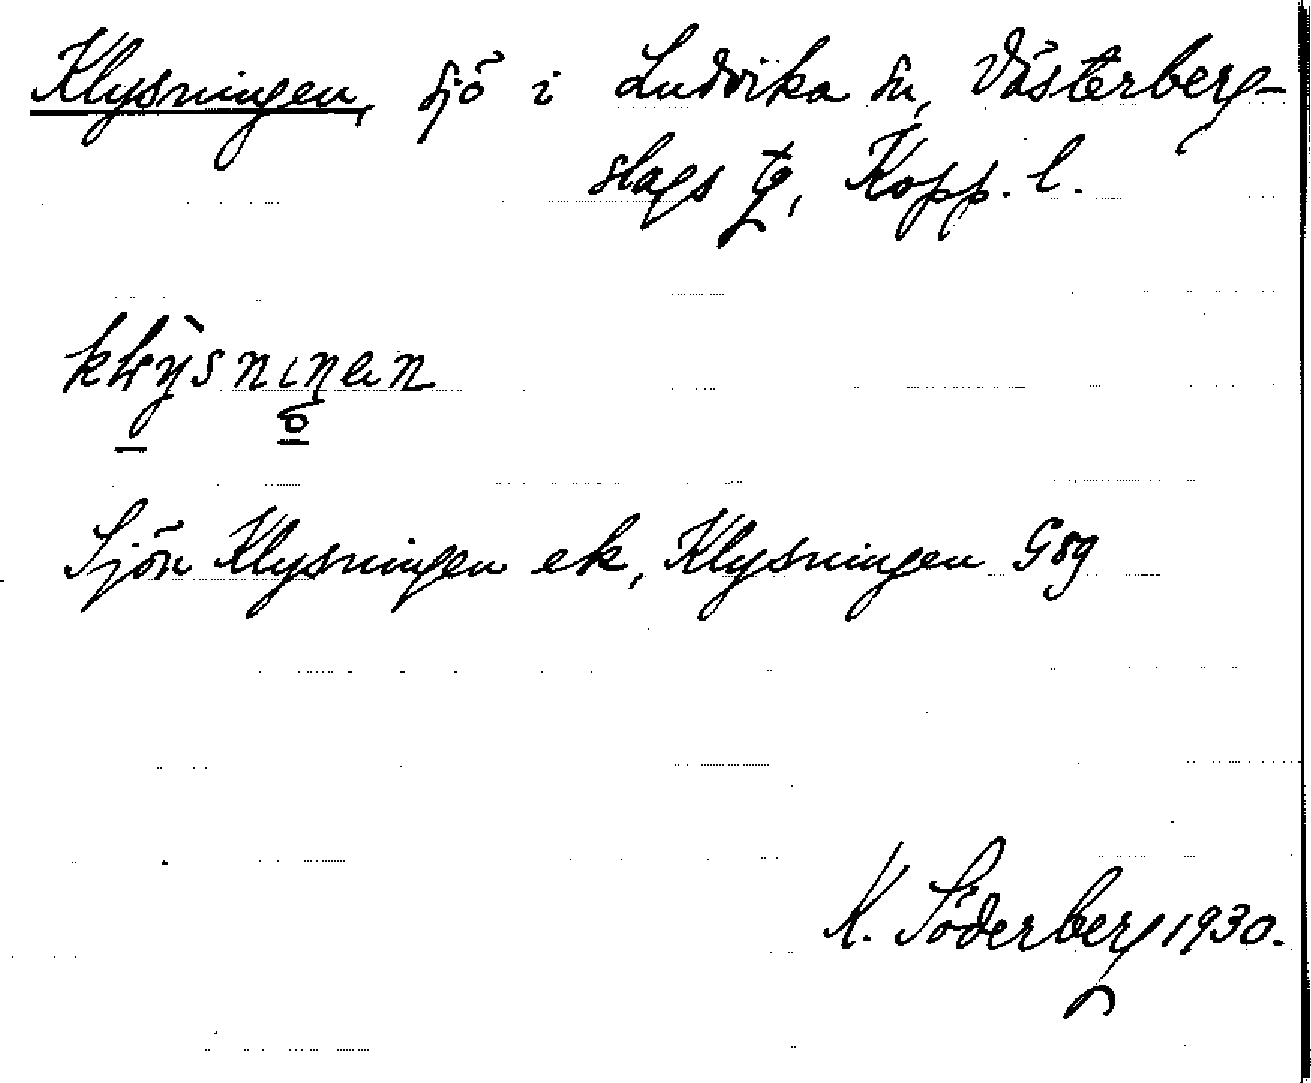 Klysningen, sjö i Ludvika sn, Västerberg-
slags tg, Kopp. l.
Sjön Klysningen ek, Klysningen Gsg
K. Söderberg 1930.